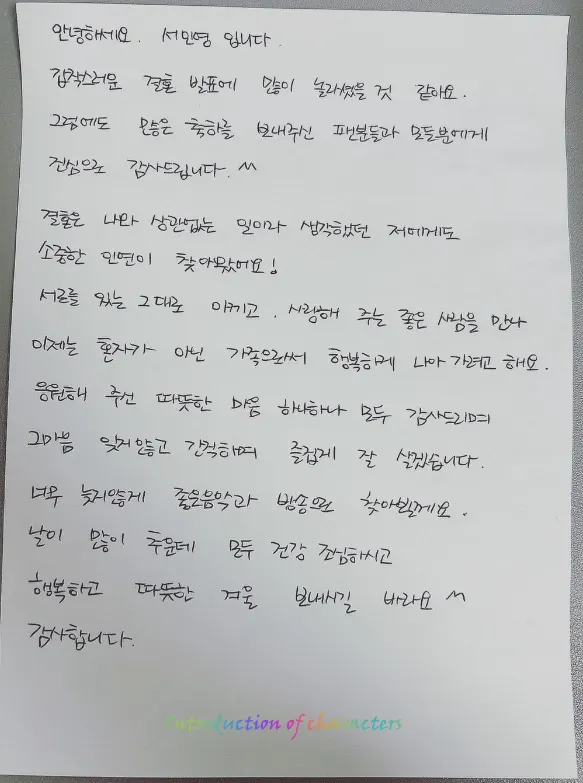 안녕하세요. 서인영 입니다.
갑작스러운 결혼 발표에 많이 놀라셨을 것 같아요.
그럼에도 많은 축하를 보내주신 팬분들과 모든분에게
진심으로 감사드립니다. ^^
결혼은 나와 상관없는 일이라 생각했던 저에게도
소중한 인연이 찾아왔어요!
서로를 있는 그대로 아끼고, 사랑해 주는 좋은 사람을 만나
이제는 혼자가 아닌 가족으로써 행복하게 나아가려고 해요.
응원해 주신 따뜻한 마음 하나하나 모두 감사드리며
그마음 잊지않고 간직하며 즐겁게 잘 살겠습니다.
너무 늦지않게 좋은음악과 방송으로 찾아뵐께요.
날이 많이 추운데 모두 건강 조심하시고
행복하고 따뜻한 겨울 보내시길 바라요 ^^
감사합니다.
Introduction of characters